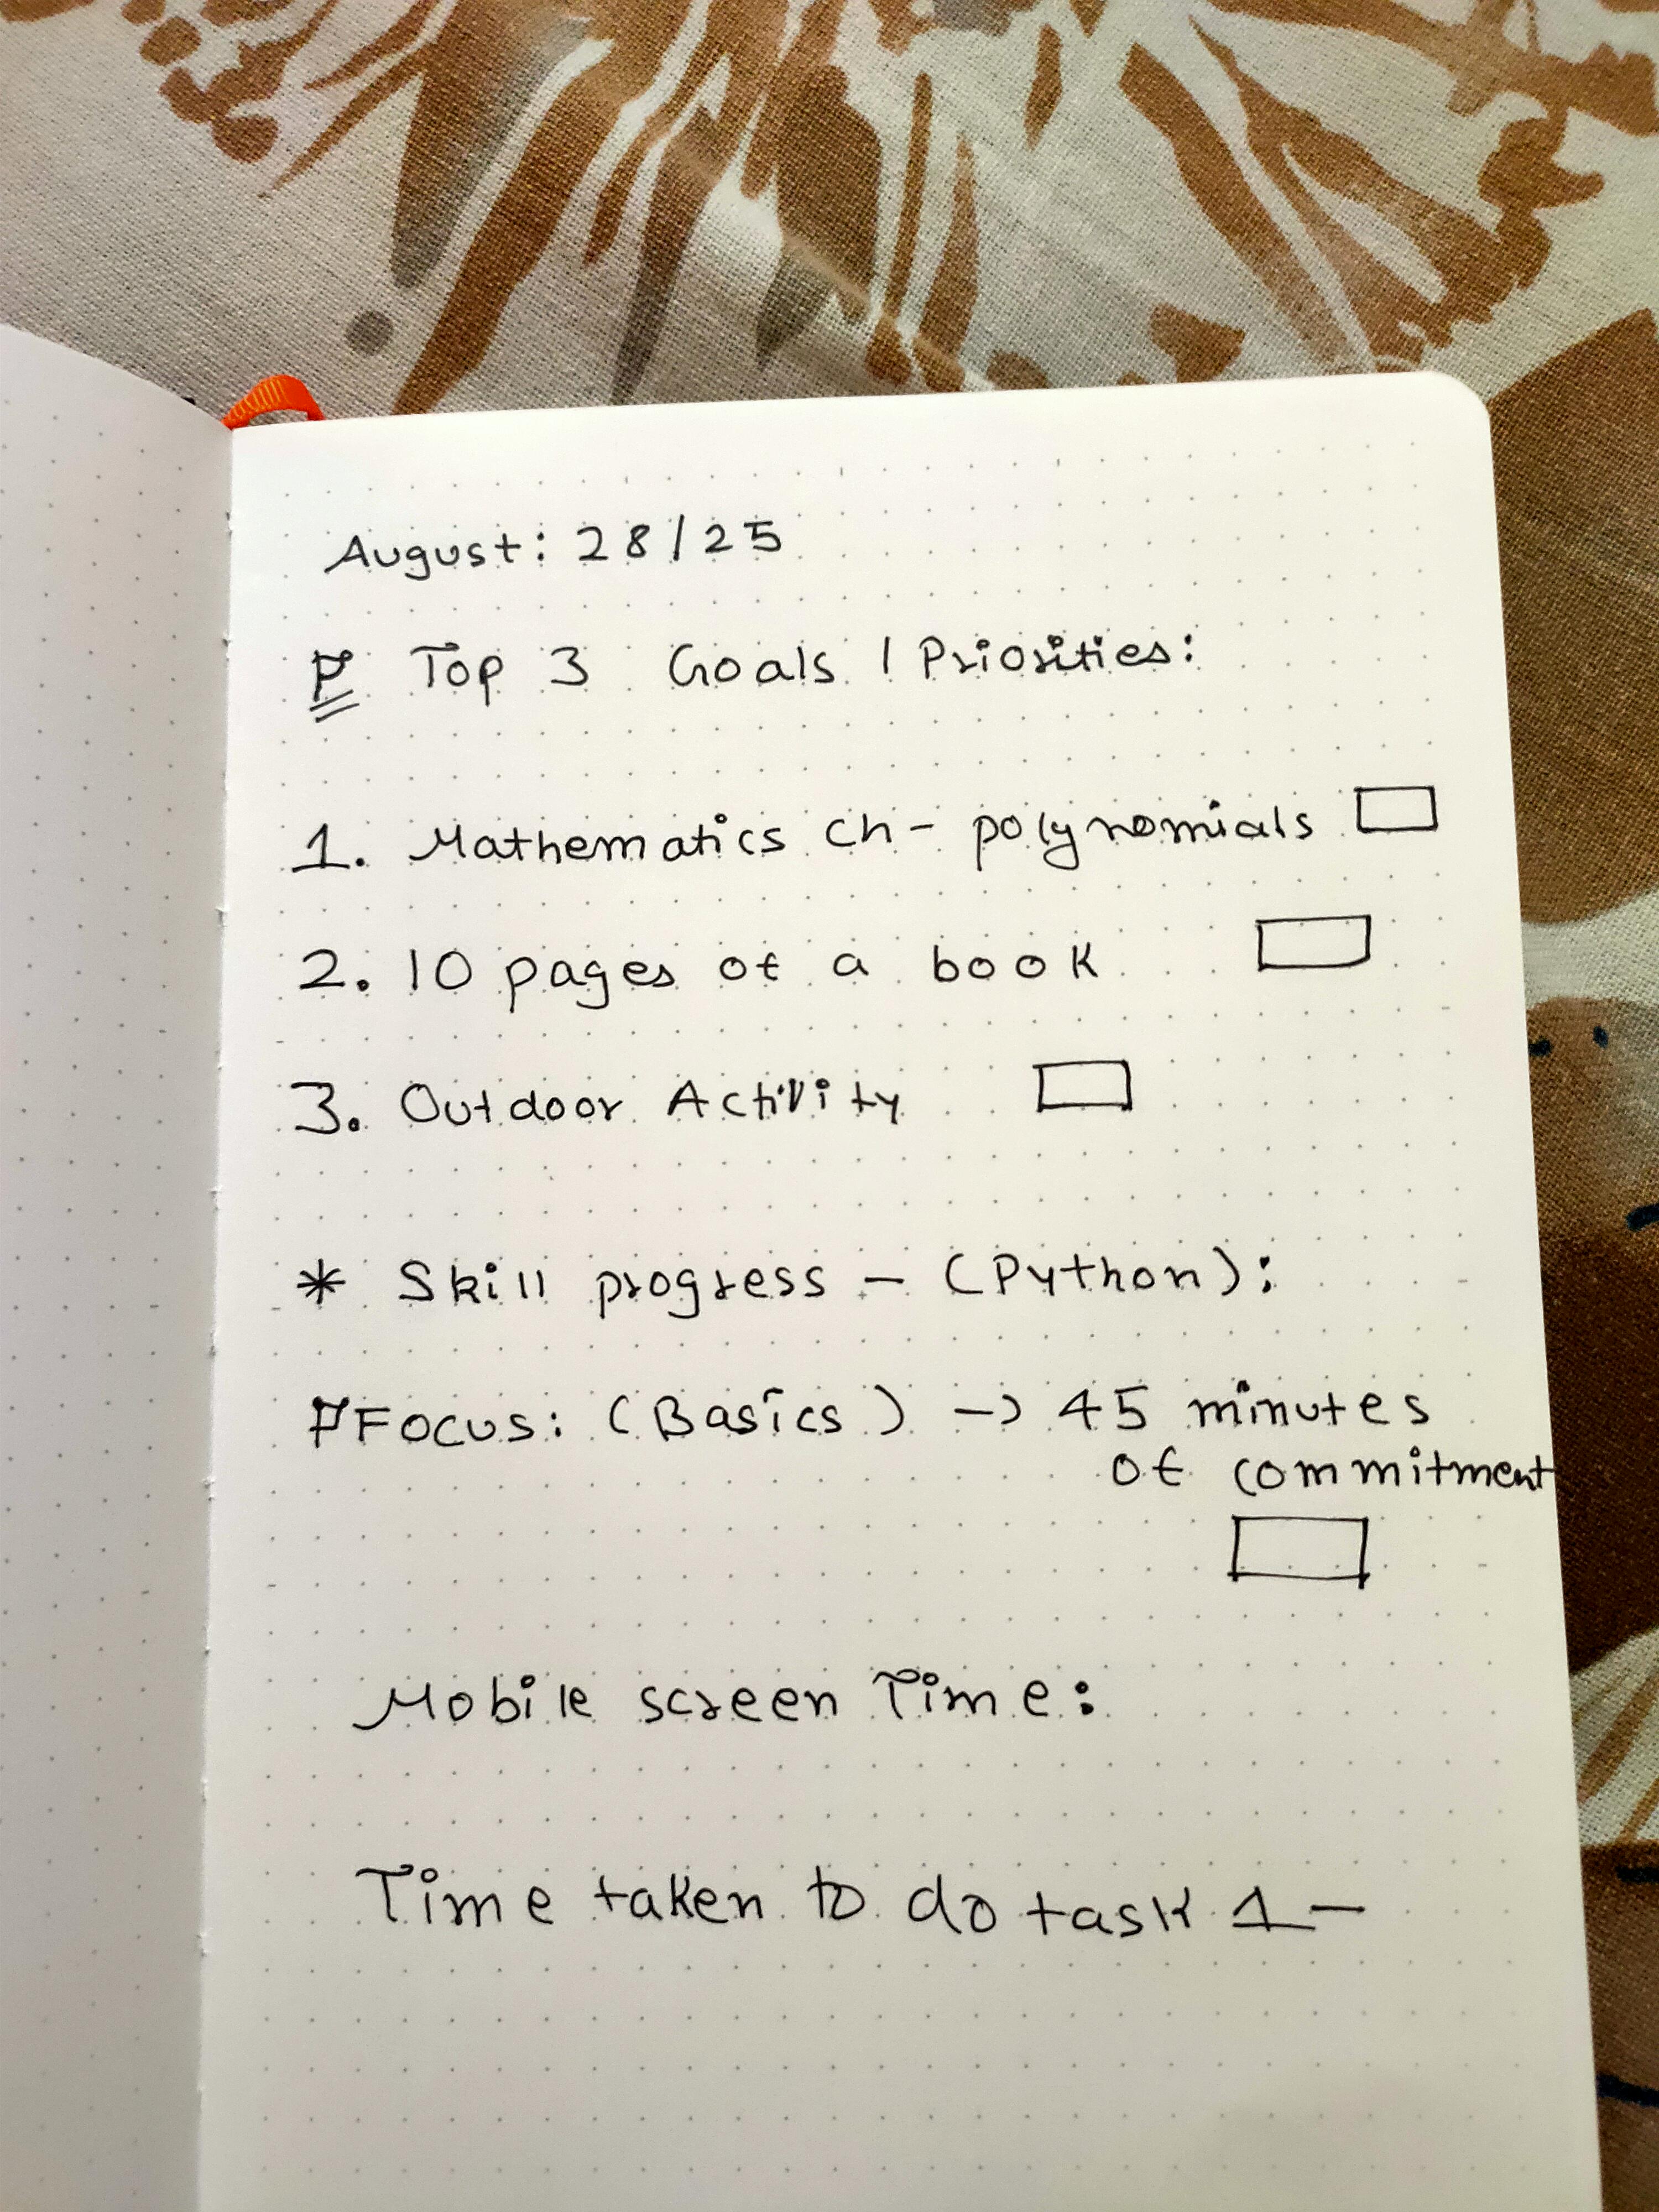 August: 28/25
Top 3 Goals / Priorities:
1. Mathematics Ch - polynomials
2. 10 pages of a book
3. Outdoor Activity
* Skill progress - (Python):
Focus: (Basics) -> 45 minutes
of commitment
Mobile screen Time:
Time taken to do task 1 -